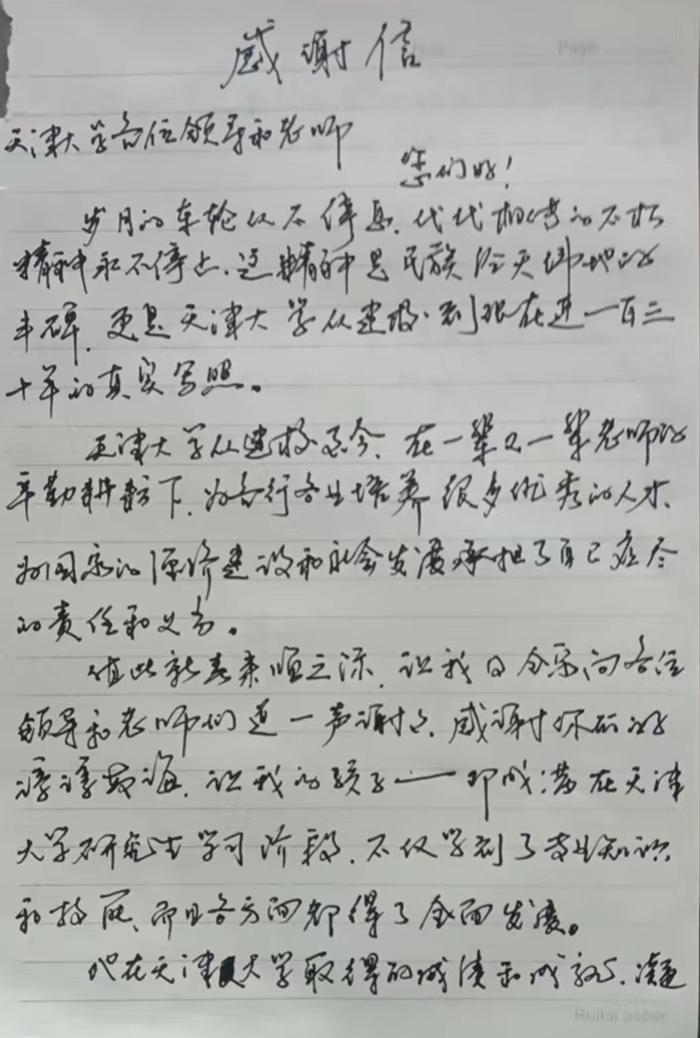 感谢信
天津大学各位领导和老师
您们好!
岁月的车轮从不停息,代代相传的不朽
精神永不停止.这精神是民族顶天仰地的
丰碑,更是天津大学从建校到现在近一百三
十年的真实写照。
天津大学从建校至今,在一辈又一辈老师的
辛勤耕耘下,为各行各业培养很多优秀的人才,
为国家的经济建设和社会发展承担了自己应尽
的责任和义务。
值此新春来临之际,让我们全家向各位
领导和老师们道一声谢谢,感谢你们的
谆谆教诲,让我的孩子——邓成满在天津
大学研究生学习阶段,不仅学到了专业知识
和技能,而且各方面都得了全面发展。
他在天津大学取得的成绩和成就,凝
Ruitai paper